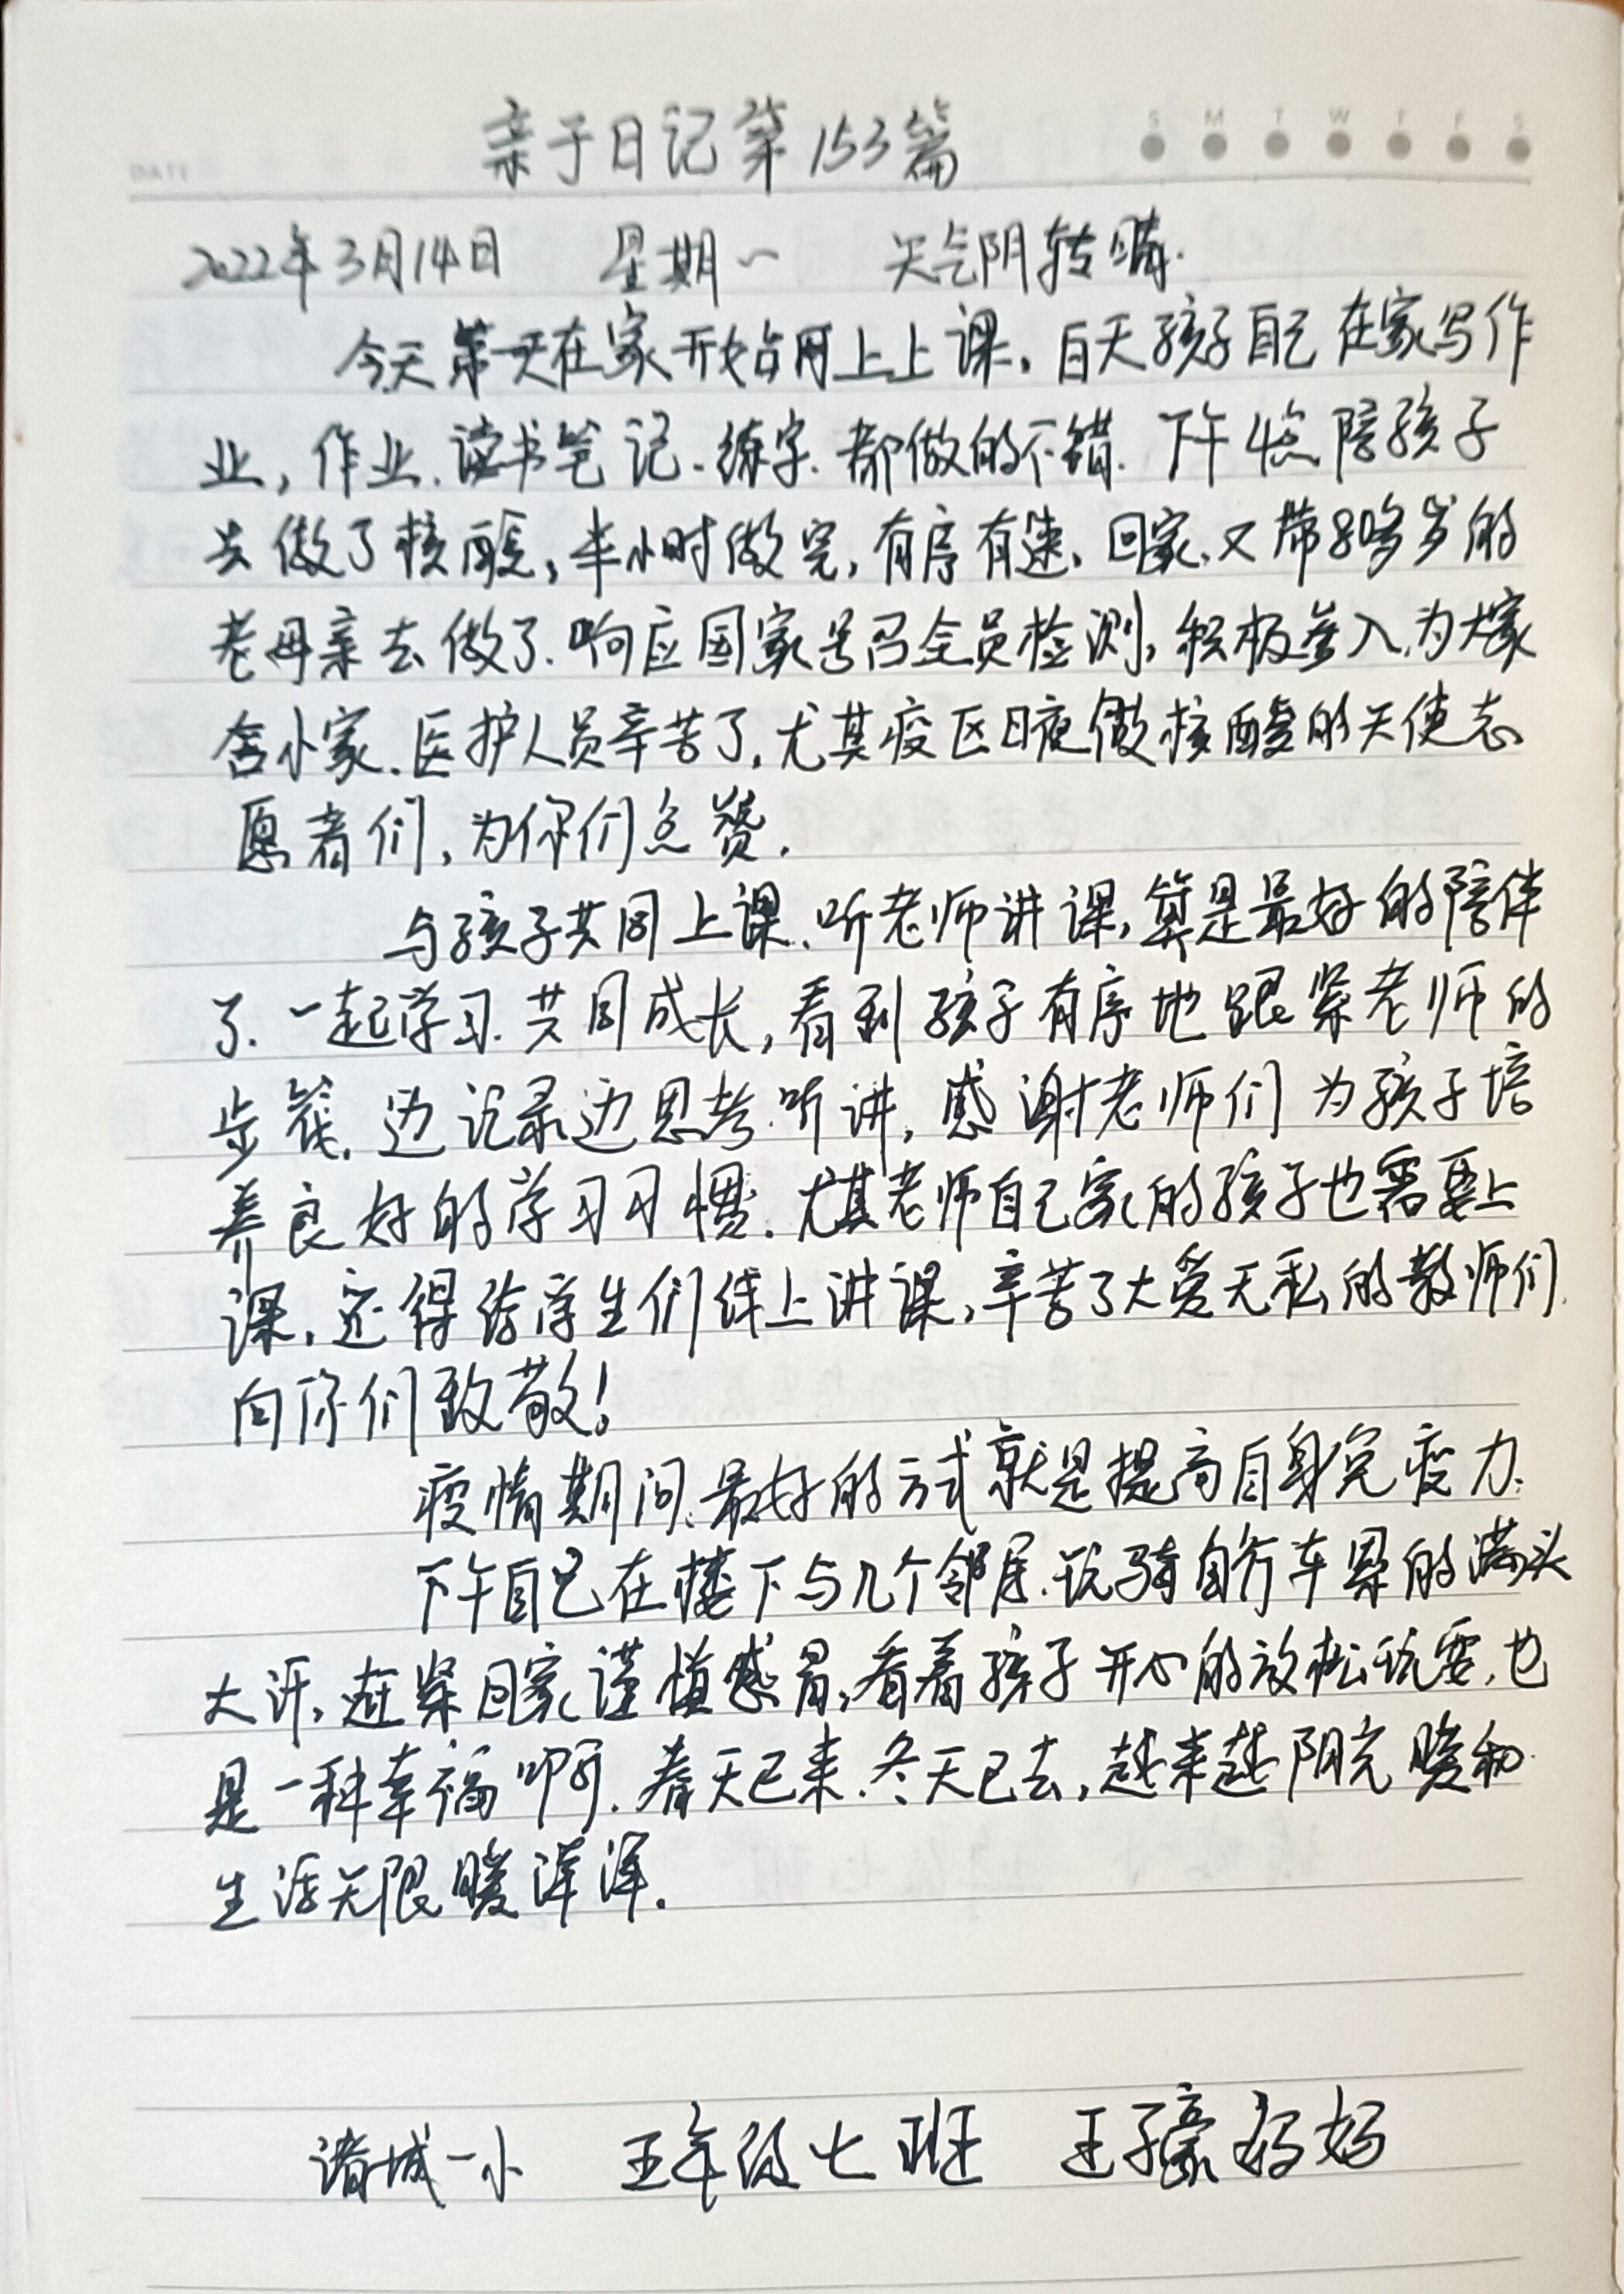 亲子日记第153篇
S M T W T F S
DATE
2022年3月14日 星期一 天气阴转晴.
今天第一天在家开始网上上课,白天孩子自己在家写作
业,作业、读书笔记、练字、都做的不错.下午4点陪孩子
去做了核酸,半小时做完,有序有速,回家,又带80多岁的
老母亲去做了.响应国家号召全员检测,积极参入,为大家
舍小家.医护人员辛苦了,尤其疫区日夜做核酸的天使志
愿者们,为你们点赞.
与孩子共同上课、听老师讲课,算是最好的陪伴
了.一起学习.共同成长,看到孩子有序地跟紧老师的
步筏,边记录边思考.听讲,感谢老师们为孩子培
养良好的学习习惯.尤其老师自己家的孩子也需要上
课,还得给学生们线上讲课,辛苦了大爱无私的教师们.
向你们致敬!
疫情期间.最好的方式就是提高自身免疫力.
下午自己在楼下与几个邻居.玩骑自行车累的满头
大汗,赶紧回家谨慎感冒,看着孩子开心的放松玩耍,也
是一种幸福啊.春天已来.冬天已去,越来越阳光暖和.
生活无限暖洋洋.
诸城一小 五年级七班 王子豪妈妈